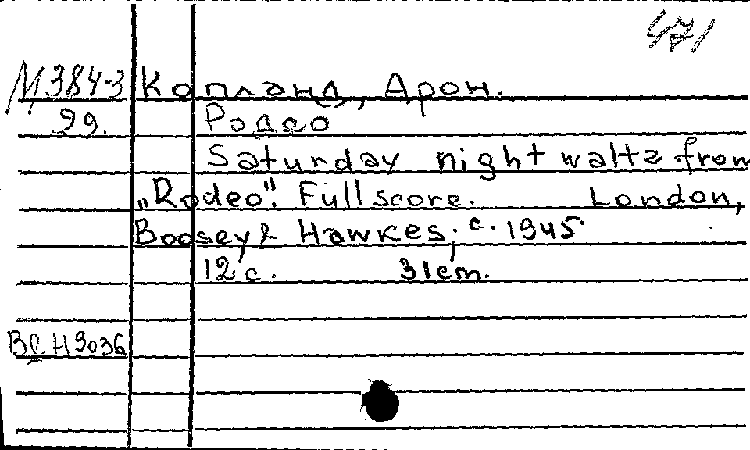 471
М384-3 Копланд, Арон.
99. Родео
Saturday night waltz from
„Rodeo". Full score. London,
Boosey & Hawkes, c. 1945.
12 с. 31 cm.
B.&H 9036